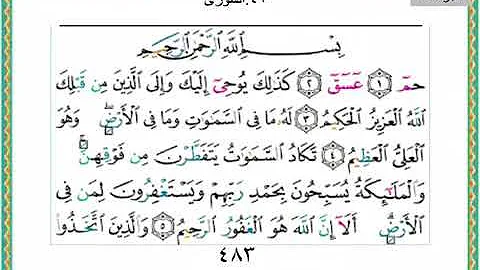 ٤٢.الشورى
بِسْمِ اللَّهِ الرَّحْمَٰنِ الرَّحِيمِ
حمٓ ١ عٓسٓقٓ ٢ كَذَٰلِكَ يُوحِىٓ إِلَيْكَ وَإِلَى الَّذِينَ مِن قَبْلِكَ
اللَّهُ الْعَزِيزُ الْحَكِيمُ ٣ لَهُۥ مَا فِى السَّمَٰوَٰتِ وَمَا فِى الْأَرْضِ ۖ وَهُوَ
الْعَلِىُّ الْعَظِيمُ ٤ تَكَادُ السَّمَٰوَٰتُ يَتَفَطَّرْنَ مِن فَوْقِهِنَّ ۚ
وَالْمَلَٰٓئِكَةُ يُسَبِّحُونَ بِحَمْدِ رَبِّهِمْ وَيَسْتَغْفِرُونَ لِمَن فِى
الْأَرْضِ ۗ أَلَآ إِنَّ اللَّهَ هُوَ الْغَفُورُ الرَّحِيمُ ٥ وَالَّذِينَ اتَّخَذُوا
٤٨٣